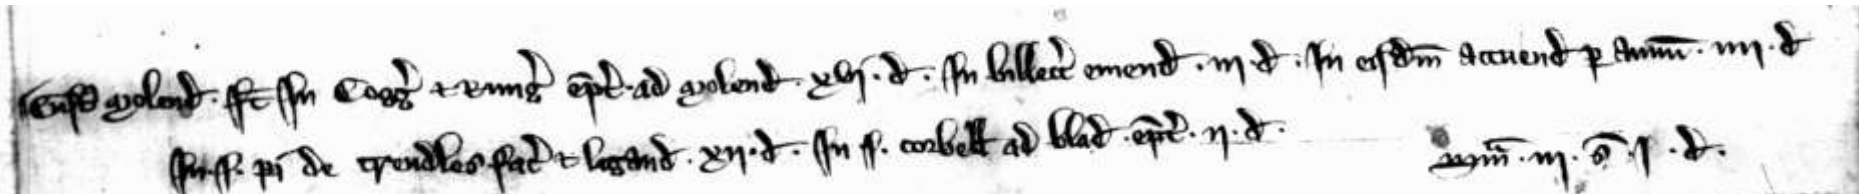 Cust Molend. It In Cogg & Rung empt. ad Molend. xvi. d. In billett emend. iii. d. In eisdm acuend p annu. iiii. d
In. j. pi de trendles fac & ligand. xii. d. In j. corbell ad blad. empt. ii. d. Sum. iii. s. j. d.